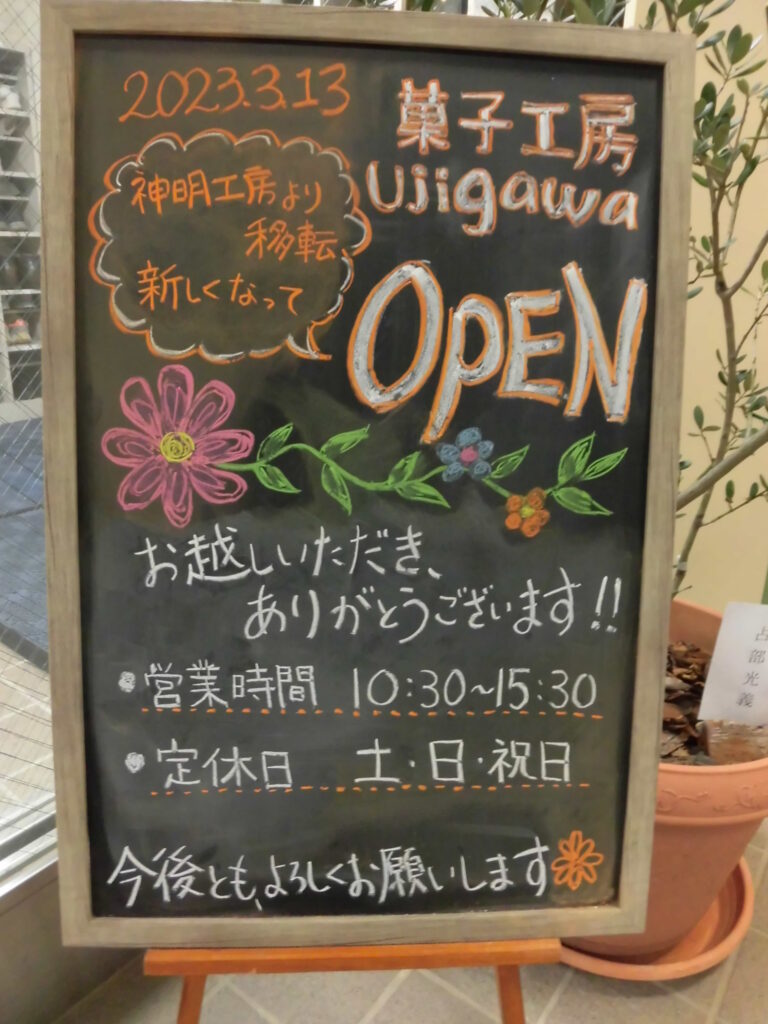 2023.3.13
神明工房より
移転
新しくなって
菓子工房
Ujigawa
OPEN
お越しいただき、
ありがとうございます!!
営業時間 10:30~15:30
定休日 土・日・祝日
今後とも、よろしくお願いします
占部光義